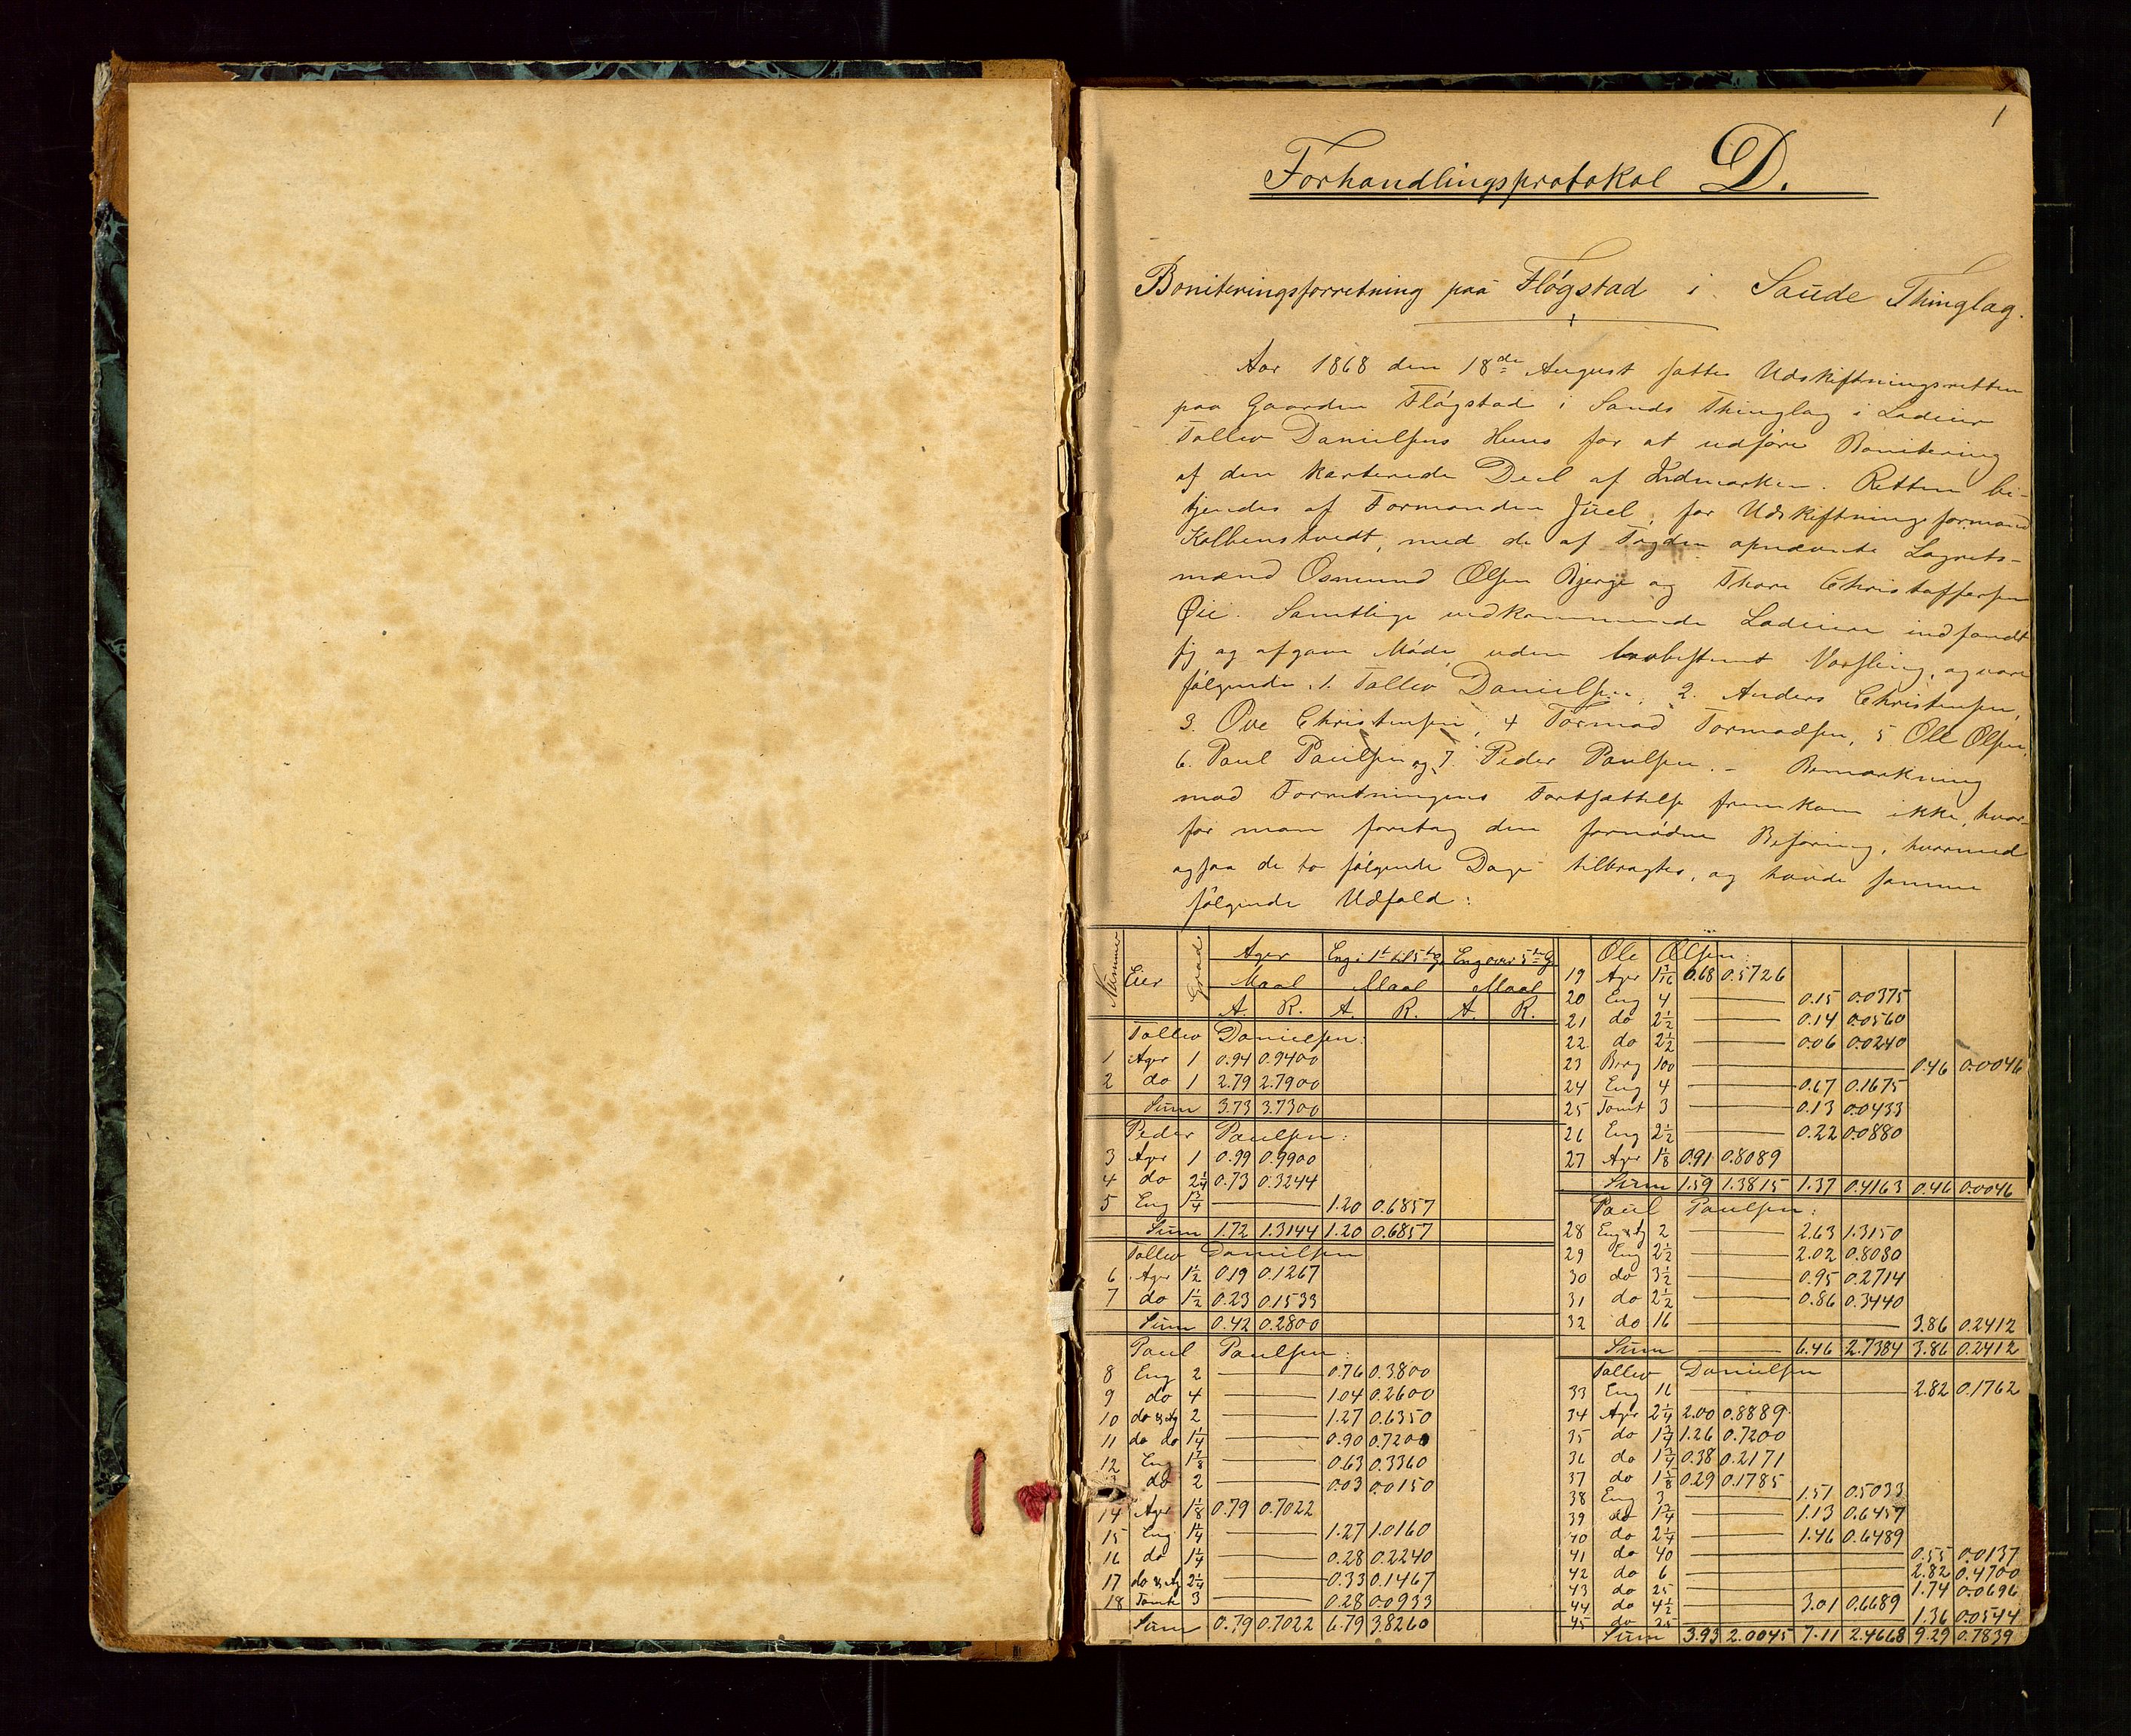 1
Forhandlingsprotokol D.
Boniteringsforretning paa Fløgstad i Saude Thinglag.
Aar 1868 den 18de August sattes Udskiftningsretten
paa Gaarden Fløgstad i Sauds Thinglag i Lodeier
Tollev Danielsens Huus for at udføre Bonitering
af den karterede Deel af Indmarken. Retten be-
tjendes af Formanden Juel, for Udskiftningsformand
Kolbenstvedt, med de af Fogden opnævnte Lagrets-
mænd Osmund Olsen Bjerge og Thore Christoffersen
Øie. Samtlige vedkommende Lodeiere indfandt
sig og afgave Møde uden lovbestemt Varsling, og vare
følgende: 1. Tollev Danielsen, 2. Anders Christensen,
3. Ove Christensen, 4 Tormod Tormodsen, 5 Ole Olsen,
6. Paul Paulsen og 7. Peder Paulsen. - Bemærkning
mod Forretningens Fortsættelse fremkom ikke, hvor-
for man foretog den fornødne Befaring, hvormed
ogsaa de to følgende Dage tilbragtes, og havde samme
følgende Udfald:
Nummer Eier Grad Ager Eng: 1ste til 5te G. Eng over 5te G.
Maal Maal Maal
A. R. A. R. A. R.
Tollev Danielsen:
1 Ager 1 0.94 0.9400
2 do 1 2.79 2.7900
Sum 3.73 3.7300
Peder Paulsen:
3 Ager 1 0.99 0.9900
4 do 2¼ 0.73 0.3244
5 Eng 1¾ 1.20 0.6857
Sum 1.72 1.3144 1.20 0.6857
Tollev Danielsen
6 Ager 1½ 0.19 0.1267
7 do 1½ 0.23 0.1533
Sum 0.42 0.2800
Paul Paulsen:
8 Eng 2 0.76 0.3800
9 do 4 1.04 0.2600
10 do & Ag 2 1.27 0.6350
11 do do 1¼ 0.90 0.7200
12 Eng 1⅞ 0.63 0.3360
13 do 2 0.03 0.0150
14 Ager 1⅛ 0.79 0.7022
15 Eng 1¼ 1.27 1.0160
16 do 1¼ 0.28 0.2240
17 do & Ag 2¼ 0.33 0.1467
18 Tomt 3 0.28 0.0933
Sum 0.79 0.7022 6.79 3.8260
Ole Olsen:
19 Ager 1 3/16 0.68 0.5726
20 Eng 4 0.15 0.0375
21 do 2½ 0.14 0.0560
22 do 2½ 0.06 0.0240
23 Berg 100 0.46 0.0046
24 Eng 4 0.67 0.1675
25 Tomt 3 0.13 0.0433
26 Eng 2½ 0.22 0.0880
27 Ager 1⅛ 0.91 0.8089
Sum 1.59 1.3815 1.37 0.4163 0.46 0.0046
Paul Paulsen:
28 Eng & Ag 2 2.63 1.3150
29 Eng 2½ 2.02 0.8080
30 do 3½ 0.95 0.2714
31 do 2½ 0.86 0.3440
32 do 16 3.86 0.2412
Sum 6.46 2.7384 3.86 0.2412
Tollev Danielsen
33 Eng 16 2.82 0.1762
34 Ager 2¼ 2.00 0.8889
35 do 1¾ 1.26 0.7200
36 do 1¾ 0.38 0.2171
37 do 1⅝ 0.29 0.1785
38 Eng 3 1.51 0.5033
39 do 1¾ 1.13 0.6457
40 do 2¼ 1.46 0.6489
41 do 40 0.55 0.0137
42 do 6 2.82 0.4700
43 do 25 1.74 0.0696
44 do 4½ 3.01 0.6689
45 do 25 1.36 0.0544
Sum 3.93 2.0045 7.11 2.4668 9.29 0.7839